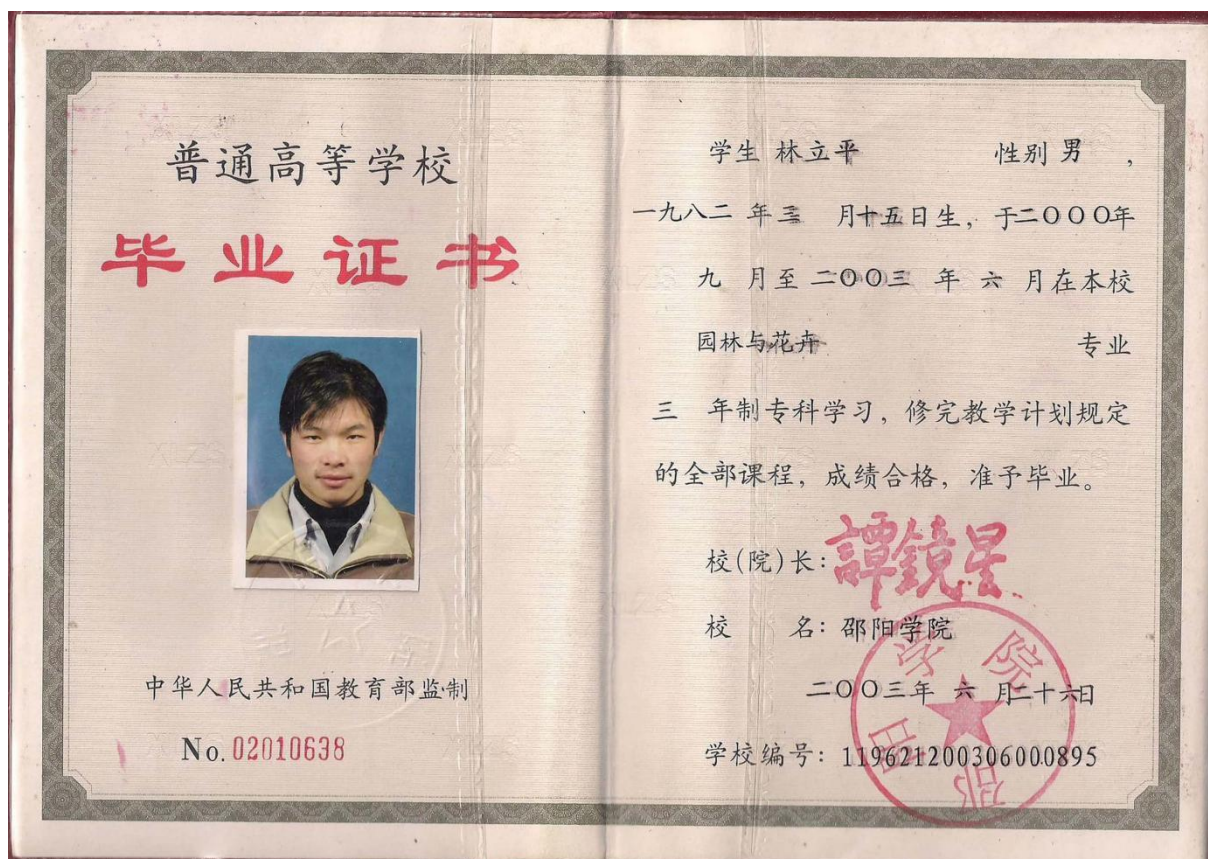 普通高等学校
毕业证书
中华人民共和国教育部监制
No. 02010638
学生 林立平 性别 男 ,
一九八二 年三 月十五日生, 于二〇〇〇年
九 月至 二〇〇三 年 六 月在本校
园林与花卉 专业
三 年制专科学习, 修完教学计划规定
的全部课程, 成绩合格, 准予毕业。
校(院)长: 譚鏡星
校 名: 邵阳学院
二〇〇三年 六 月二十六日
学校编号: 119621200306000895
邵阳学院